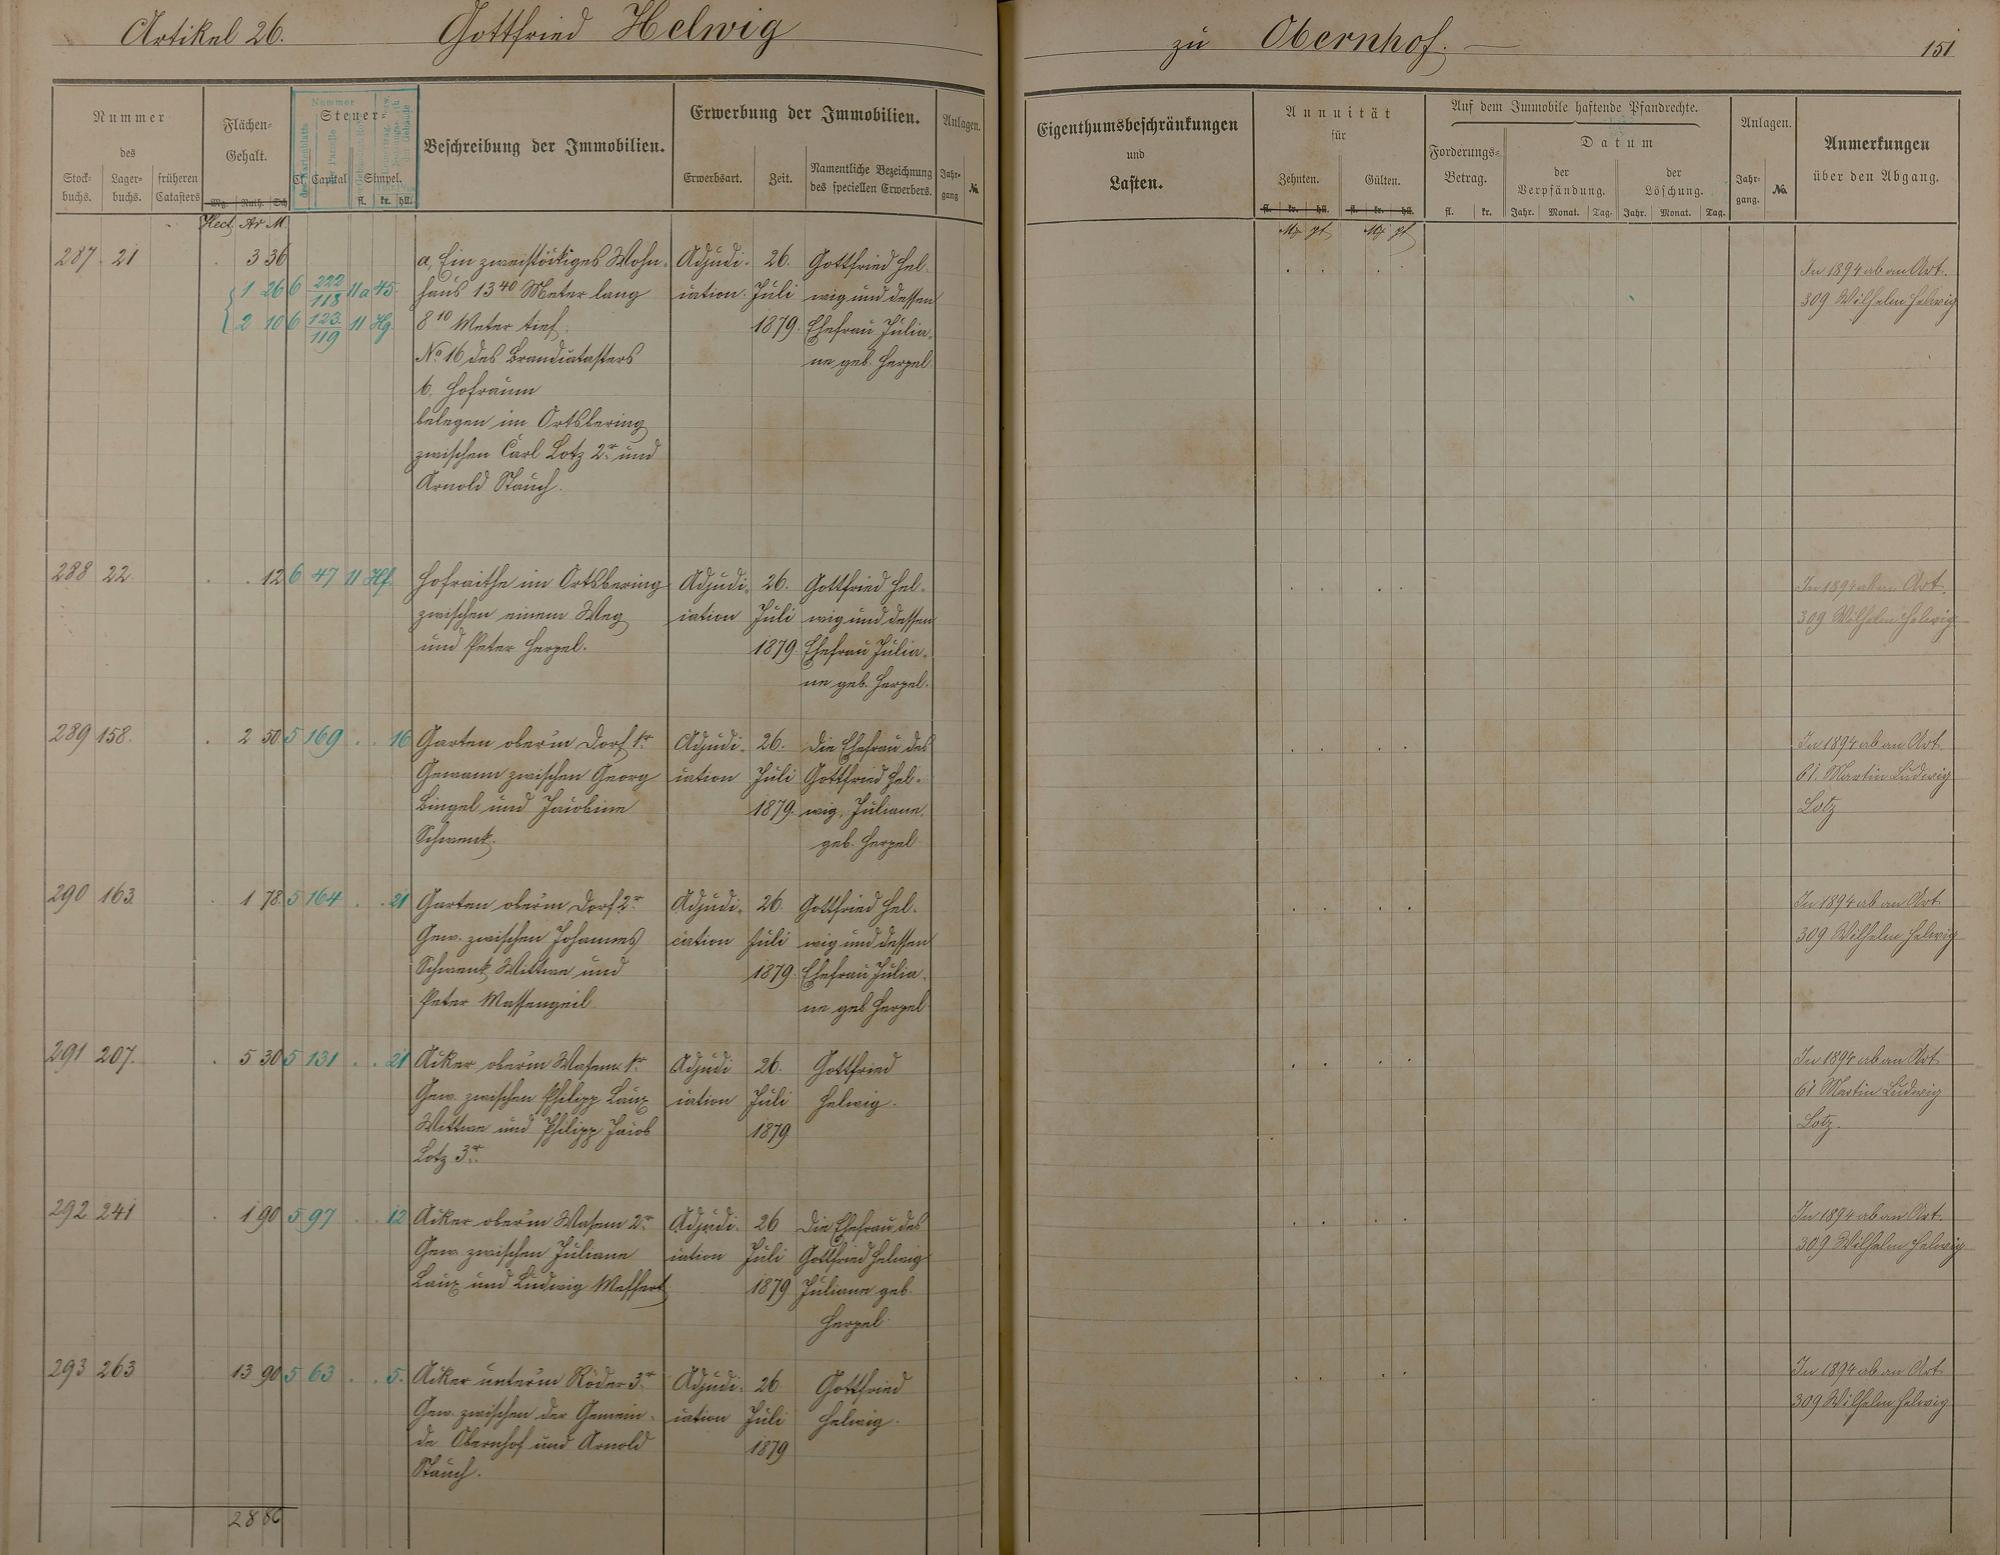 Artikel 26. Gottfried Helwig zu Obernhof. 151
Nummer des
Stockbuchs. Lagerbuchs. früheren Catasters
Flächen-Gehalt.
Mg. Ruth. Sch
Hect Ar M
Steuer-
Nummer
des Kartenblatts
der Parzelle
Cl. Capital Simpel.
fl. kr. hll.
Beschreibung der Immobilien.
Erwerbung der Immobilien.
Erwerbsart. Zeit. Namentliche Bezeichnung des speciellen Erwerbers.
Anlagen.
Jahrgang No.
Eigenthumsbeschränkungen
und
Lasten.
Annuität
für
Zehnten. Gülten.
fl. kr. hll. fl. kr. hll.
Auf dem Immobile haftende Pfandrechte.
Forderungs-Betrag.
fl. kr.
Datum
der Verpfändung. der Löschung.
Jahr. Monat. Tag. Jahr. Monat. Tag.
Anlagen.
Jahrgang. No.
Anmerkungen
über den Abgang.
Mg pf Mg pf
287. 21 3 36
1 26 6 222/118 11 a 45.
2 10 6 123./119 11 Hg.
a, Ein zweistöckiges Wohn-
haus 13 40 Meter lang
8 10 Meter tief.
No 16 des Brandcatasters
b. Hofraum
belegen im Ortsbering
zwischen Carl Lotz 2r und
Arnold Stauch.
Adjudi-
cation.
26.
Juli
1879.
Gottfried Hel-
wig und dessen
Ehefrau Julia-
ne geb. Herpel
In 1894 ab an Art.
309 Wilhelm Helwig
288 22. 12 6 47 11 Hf.
Hofraithe im Ortsbering
zwischen einem Weg
und Peter Herpel.
Adjudi-
cation
26.
Juli
1879
Gottfried Hel-
wig und dessen
Ehefrau Julia-
ne geb. Herpel.
In 1894 ab an Art.
309 Wilhelm Helwig
289 158. 2 50 5 169 . . 16
Garten ober'm Dorf 1r
Gewann zwischen Georg
Bingel und Jacobine
Schwenk.
Adjudi-
cation
26.
Juli
1879.
Die Ehefrau des
Gottfried Hel-
wig, Juliane,
geb. Herpel
In 1894 ab an Art.
61. Martin Ludwig
Lotz
290 163. 1 78 5 164 . . 21
Garten ober'm Dorf 2r
Gew. zwischen Johannes
Schwenk Wittwe und
Peter Massengeil
Adjudi-
cation
26.
Juli
1879.
Gottfried Hel-
wig und dessen
Ehefrau Julia-
ne geb Herpel
In 1894 ab an Art
309 Wilhelm Helwig
291 207. 5 30 5 131 . . 21
Acker ober'm Wasem 1r
Gew. zwischen Philipp Laux
Wittwe und Philipp Jacob
Lotz 3r
Adjudi
cation
26.
Juli
1879
Gottfried
Helwig.
In 1894 ab an Art
61 Martin Ludwig
Lotz.
292 241 1 90 5 97 . . 12
Acker ober'm Wasem 2r
Gew. zwischen Juliane
Laux und Ludwig Meffert
Adjudi-
cation
26
Juli
1879
Die Ehefrau des
Gottfried Helwig
Juliane geb.
Herpel
In 1894 ab an Art.
309 Wilhelm Helwig
293 263 13 90 5 63 . . 5.
Acker unter'm Röder 3r
Gew. zwischen der Gemein-
de Obernhof und Arnold
Stauch.
Adjudi-
cation
26
Juli
1879
Gottfried
Helwig.
In 1894 ab an Art
309 Wilhelm Helwig
28 86